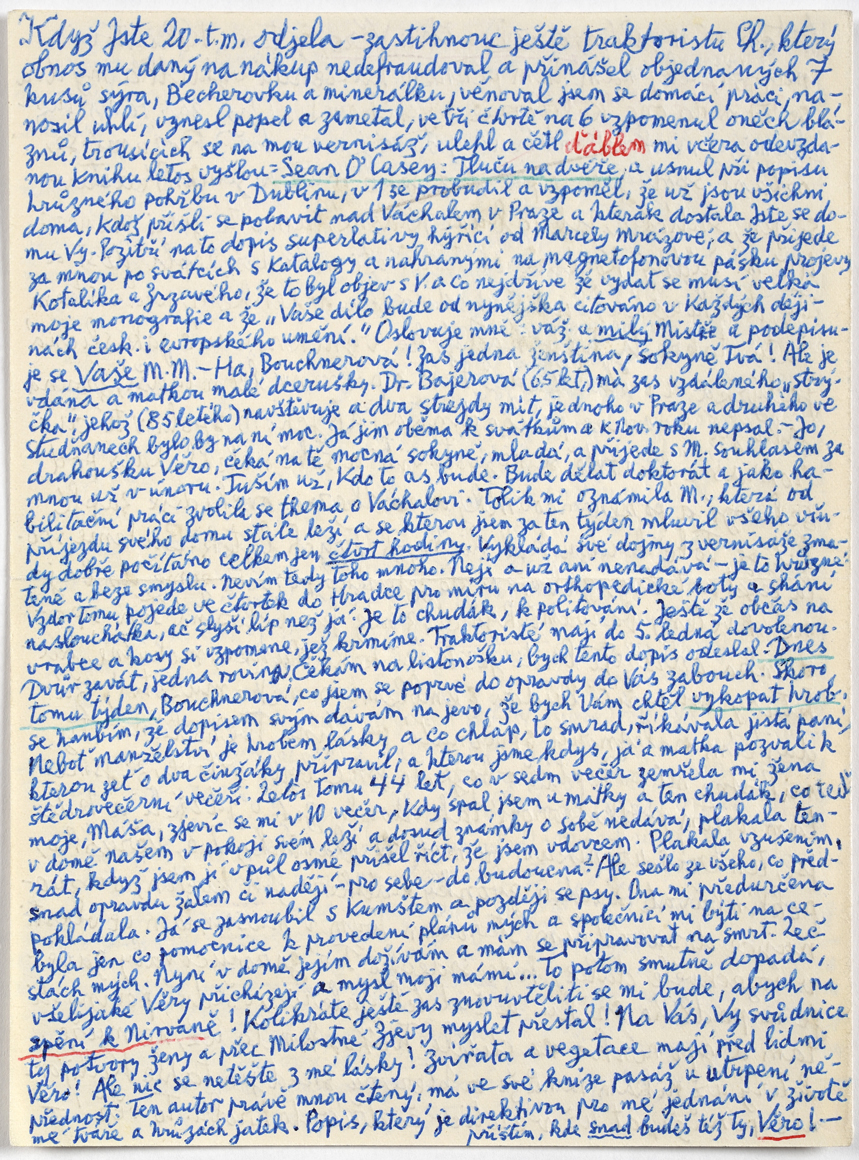 Když Jste 20. t.m. odjela – zastihnouc ještě traktoristu Ch., který
obnos mu daný na nákup nedefraudoval a přinášel objednaných 7
kusů sýra, Becherovku a minerálku, věnoval jsem se domácí práci, na-
nosil uhlí, vznesl popel a zametal, ve tři čtvrtě na 6 vzpomenul oněch blá-
znů, trousících se na mou vernisáž, ulehl a četl ďáblem mi včera odevzda-
nou knihu letos vyšlou = Sean O'Casey: Tluču na dveře, a usnul při popisu
hrůzného pohřbu v Dublinu, v 1 ze probudil a vzpoměl, že už jsou všichni
doma, kdož přišli se pobavit nad Váchalem v Praze a kterak dostala Jste se do-
mu Vy. Pozítří na to dopis superlativy hýřící od Marcely Mrázové, a že přijede
za mnou po svátcích s katalogy a nahranými na magnetofonovou pásku projevy
Kotalíka a Zrzavého, že to byl objev s V. a co nejdříve že vydat se musí velká
moje monografie a že „Vaše dílo bude od nynějška citováno v každých ději-
nách česk. i evropského umění." Oslovuje mně: váž. a milý Mistře a podepisu-
je se Vaše M.M. – Ha, Bouchnerová! Zas jedna ženština, sokyně Tvá! Ale je
vdaná a matkou malé dcerušky. Dr. Bajerová (65 let,) má zas vzdáleného „strý-
čka" jehož (85 letého) navštěvuje a dva strejdy mít, jednoho v Praze a druhého ve
Studňanech bylo by na ni moc. Já jim oběma k svátkům a k Nov. roku nepsal. – Jo,
drahoušku Věro, čeká na tě mocná sokyně, mladá, a přijede s M. souhlasem za
mnou už v únoru. Tuším už, kdo to as bude. Bude dělat doktorát a jako ha-
bilitační práci zvolila se thema o Váchalovi. Tolik mi oznámila M., která od
příjezdu svého domu stále leží a se kterou jsem za ten týden mluvil všeho všu-
dy dobře počítáno celkem jen čtvrt hodiny. Vykládá své dojmy z vernisáže zma-
teně a beze smyslu. Nevím tedy toho mnoho. Nejí a už ani nenadává – je to hrůzné.
Vzdor tomu pojede ve čtvrtek do Hradce pro míru na orthopedické boty a shání
naslouchátka, ač slyší líp než já. Je to chudák, k politování. Ještě že občas na
vrabce a kosy si vzpomene, jež krmíme. Traktoristé mají do 5. ledna dovolenou.
Dvůr zavát, jedna rovina. Čekám na listonošku, bych tento dopis odeslal. Dnes
tomu týden, Bouchnerová, co jsem se poprvé do opravdy do Vás zabouch. Skoro
se hanbím, že dopisem svým dávám na jevo, že bych Vám chtěl vykopat hrob.
Neboť manželství je hrobem lásky a co chlap, to smrad, říkávala jistá paní,
kterou zeť o dva činžáky připravil, a kterou jsme kdys, já a matka pozvali k
štědrovečerní večeři. Letos tomu 44 let, co v sedm večer zemřela mi žena
moje, Máša, zjevíc se mi v 10 večer, kdy spal jsem u matky a ten chudák, co teď
v domě našem v pokoji svém leží a dosud známky o sobě nedává, plakala ten-
rát, když jsem jí v půl osmé přišel říct, že jsem vdovcem. Plakala vzrušením,
snad opravdu žalem či nadějí – pro sebe – do budoucna? Ale sešlo ze všeho, co před-
pokládala. Já se zasnoubil s Kumštem a později se psy. Ona mi předurčena
byla jen co pomocnice k provedení plánů mých a společnicí mi býti na ce-
stách mých. Nyní v domě jejím dožívám a mám se připravovat na smrt. Leč
všelijaké Věry přicházejí a mysl moji mámí... To potom smutně dopadá,
spění k Nirvaně! Kolikráte ještě zas znovuvtěliti se mi bude, abych na
ty potvory ženy a přec Milostné Zjevy myslet přestal! Na Vás, Vy svůdnice
Věro! Ale nic se netěšte z mé lásky! Zvířata a vegetace mají před lidmi
přednost. Ten autor právě mnou čtený, má ve své knize pasáž u utrpení ně-
mé tváře a hrůzách jatek. Popis, který je direktivou pro mé jednání v životě
příštím, kde snad budeš též ty, Věro! –